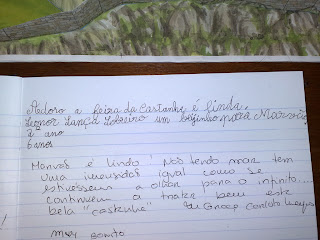 Adoro a feira da Castanha é linda.
Leonor Lança Loureiro um beijinho para Marvão
2º ano
6 anos
Marvão é lindo! Não tendo mar tem
uma imensidão igual como se
estivessem a olhar para o infinito...
continuem a tratar bem esta
bela "castanha"
Muy Bonito
!